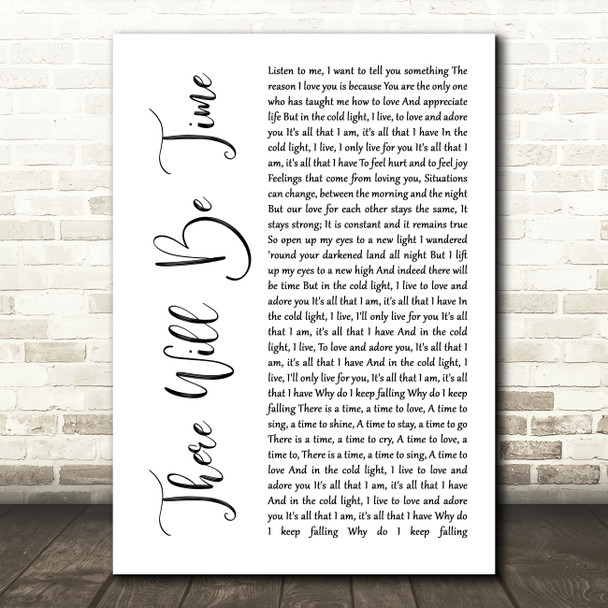 There Will Be Time
Listen to me, I want to tell you something The
reason I love you is because You are the only one
who has taught me how to love And appreciate
life But in the cold light, I live, to love and adore
you It's all that I am, it's all that I have In the
cold light, I live, I only live for you It's all that I
am, it's all that I have To feel hurt and to feel joy
Feelings that come from loving you, Situations
can change, between the morning and the night
But our love for each other stays the same, It
stays strong; It is constant and it remains true
So open up my eyes to a new light I wandered
'round your darkened land all night But I lift
up my eyes to a new high And indeed there will
be time But in the cold light, I live to love and
adore you It's all that I am, it's all that I have In
the cold light, I live, I'll only live for you, It's all
that I am, it's all that I have And in the cold
light, I live, To love and adore you, It's all that I
am, it's all that I have And in the cold light, I
live, I'll only live for you, It's all that I am, it's all
that I have Why do I keep falling Why do I keep
falling There is a time, a time to love, A time to
sing, a time to shine, A time to stay, a time to go
There is a time, a time to cry, A time to love, a
time to, There is a time, a time to sing, A time to
love And in the cold light, I live to love and
adore you It's all that I am, it's all that I have
And in the cold light, I live to love and adore
you It's all that I am, it's all that I have Why do
I keep falling Why do I keep falling